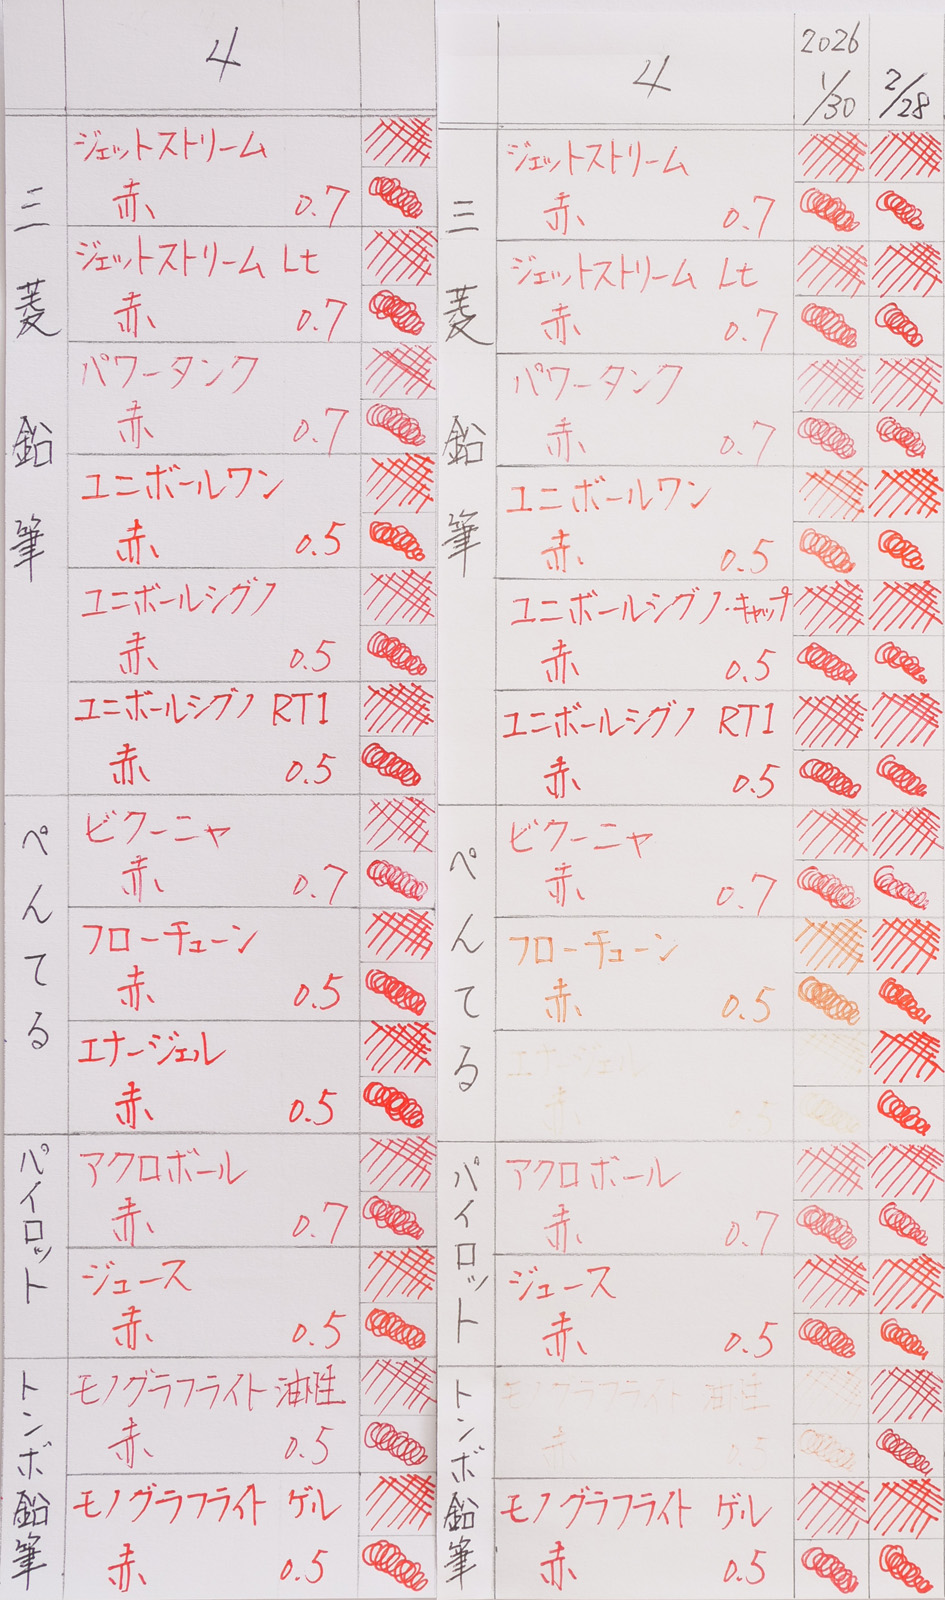 4
三菱鉛筆
ジェットストリーム
赤 0.7
ジェットストリーム Lt
赤 0.7
パワータンク
赤 0.7
ユニボールワン
赤 0.5
ユニボールシグノ
赤 0.5
ユニボールシグノ RT1
赤 0.5
ぺんてる
ビクーニャ
赤 0.7
フローチューン
赤 0.5
エナージェル
赤 0.5
パイロット
アクロボール
赤 0.7
ジュース
赤 0.5
トンボ鉛筆
モノグラフライト 油性
赤 0.5
モノグラフライト ゲル
赤 0.5
4
2026
1/30 2/28
三菱鉛筆
ジェットストリーム
赤 0.7
ジェットストリーム Lt
赤 0.7
パワータンク
赤 0.7
ユニボールワン
赤 0.5
ユニボールシグノ・キャップ
赤 0.5
ユニボールシグノ RT1
赤 0.5
ぺんてる
ビクーニャ
赤 0.7
フローチューン
赤 0.5
エナージェル
赤 0.5
パイロット
アクロボール
赤 0.7
ジュース
赤 0.5
トンボ鉛筆
モノグラフライト 油性
赤 0.5
モノグラフライト ゲル
赤 0.5